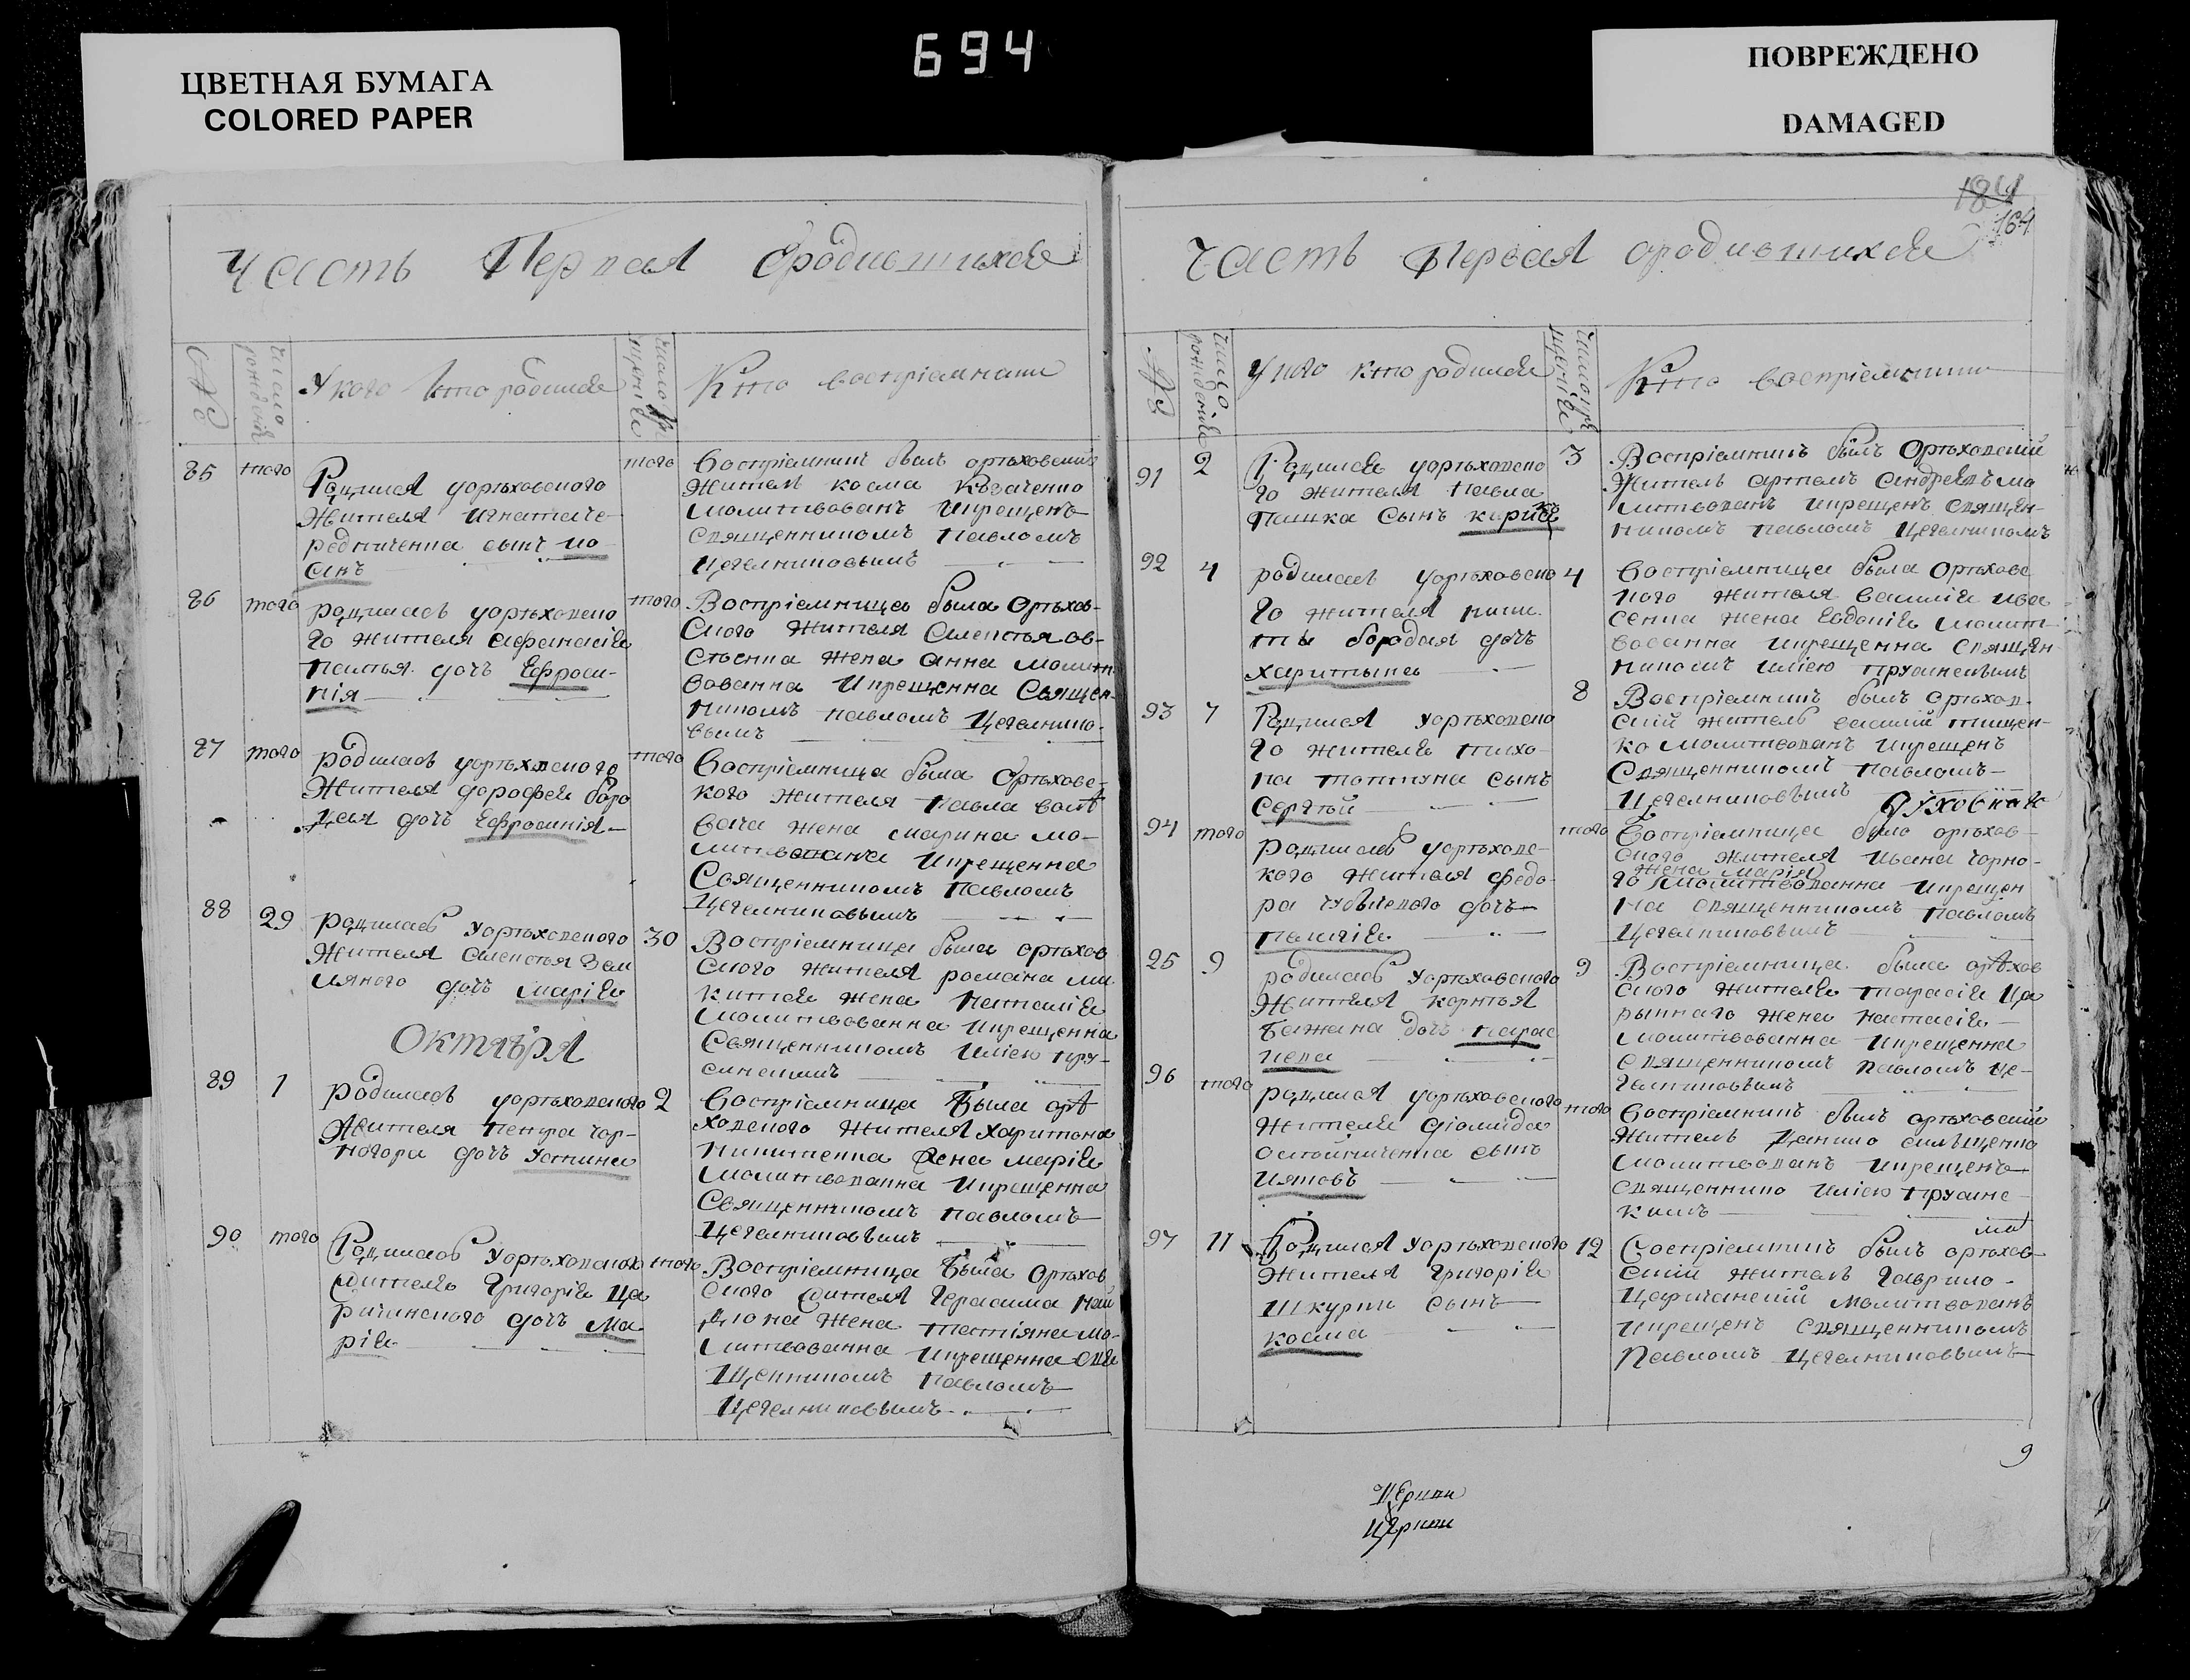 694
ЦВЕТНАЯ БУМАГА
COLORED PAPER
ПОВРЕЖДЕНО
DAMAGED
Часть Первая ородившихся
№
число рождения
У кого кто родился
число крщения
Кто восприемники
85 того
Родился уорѣховского
Жителя Игната
редниченка сынъ ио
анъ
того
Восприемникъ былъ орѣховский
Житель косма
молитвованъ икрещенъ
священникомъ павломъ
Цегелниковымъ
86 того
родилась уорѣховско
го жителя афанасия
дочь Ефроси
ния
того
Восприемница была Орѣхов-
ского жителя
жена анна молит
вованна икрещенна Священ
никомъ павломъ Цегелнико-
вымъ
87 того
родилась уорѣховского
Жителя дорофея боро
дая дочь Ефросиния
того
Восприемница была Орѣховс-
кого жителя павла
жена марина мо-
литвованна икрещенна
Священникомъ Павломъ
Цегелниковымъ
88 29
родилась уорѣховского
Жителя
дочь мария
30
Восприемница была орѣхов
ского жителя романа ми
китая жена наталия
молитвованна икрещенна
Священникомъ илиею пру-
синскимъ
Октября
89 1
родилась уорѣховского
Жителя петра чор-
ногора дочь устина
2
Восприемница была орѣ
ховского жителя харитона
никитенка жена мария
молитвованна икрещенна
Священникомъ павломъ
Цегелниковымъ
90 того
Родилась уорѣховского
жителя Григория Ца
ричанского дочь ма
рия
того
Восприемница была Орѣхов
ского жителя Герасима най
дюна жена татияна мо-
литвованна икрещенна свя
щенникомъ павломъ
Цегелниковымъ
184
164
Часть Первая ородившихся
№
число рождения
У кого кто родился
число крщения
Кто восприемники
91 2
Родился уорѣховско
го жителя павла
пашка сынъ
3
Восприемникъ былъ Орѣховский
Житель артемъ андреевъ мо
литвованъ икрещенъ священ-
никомъ павломъ Цегелникомъ
92 4
родилась уорѣховско
го жителя ники
ты бородая дочь
харитына
4
Восприемница была Орѣховс
кого жителя василия ива
сенка жена евдокия молит
вованна икрещенна священ
никомъ илиею прусинскимъ
93 7
Родился уорѣховско
го жителя тихо
на сынъ
Сергѣй
8
Восприемникъ былъ Орѣхов
ский житель василий тищен-
ко молитвованъ икрещенъ
Священникомъ павломъ
Цегелниковымъ
94 того
родилась уорѣховс-
кого жителя федо
ра дочь
пелагия
того
Восприемница была орѣхов
ского жителя ивана чорно-
жена мария
го молитвованна икрещен
на священникомъ павломъ
Цегелниковымъ
95 9
родилась уорѣховского
Жителя корнѣя
бажана дочь парас
кева
9
Восприемница была орѣхов
ского жителя тарасия ца
рынного жена настасия
молитвованна икрещенна
священникомъ павломъ це-
гелниковымъ
96 того
родился уорѣховского
жителя диомида
остойниченка сынъ
Ияковъ
того
Восприемникъ былъ орѣховский
Житель данило силѣщенко
молитвованъ икрещенъ
священнико илиею прусинс
кимъ
97 11
Родился уорѣховского
Жителя Григория
Шкурки Сынъ
косма
12
Восприемникъ былъ орѣхов
ский житель Гаврило
Царичанский молитвованъ
икрещенъ священникомъ
Павломъ Цегелниковымъ
9